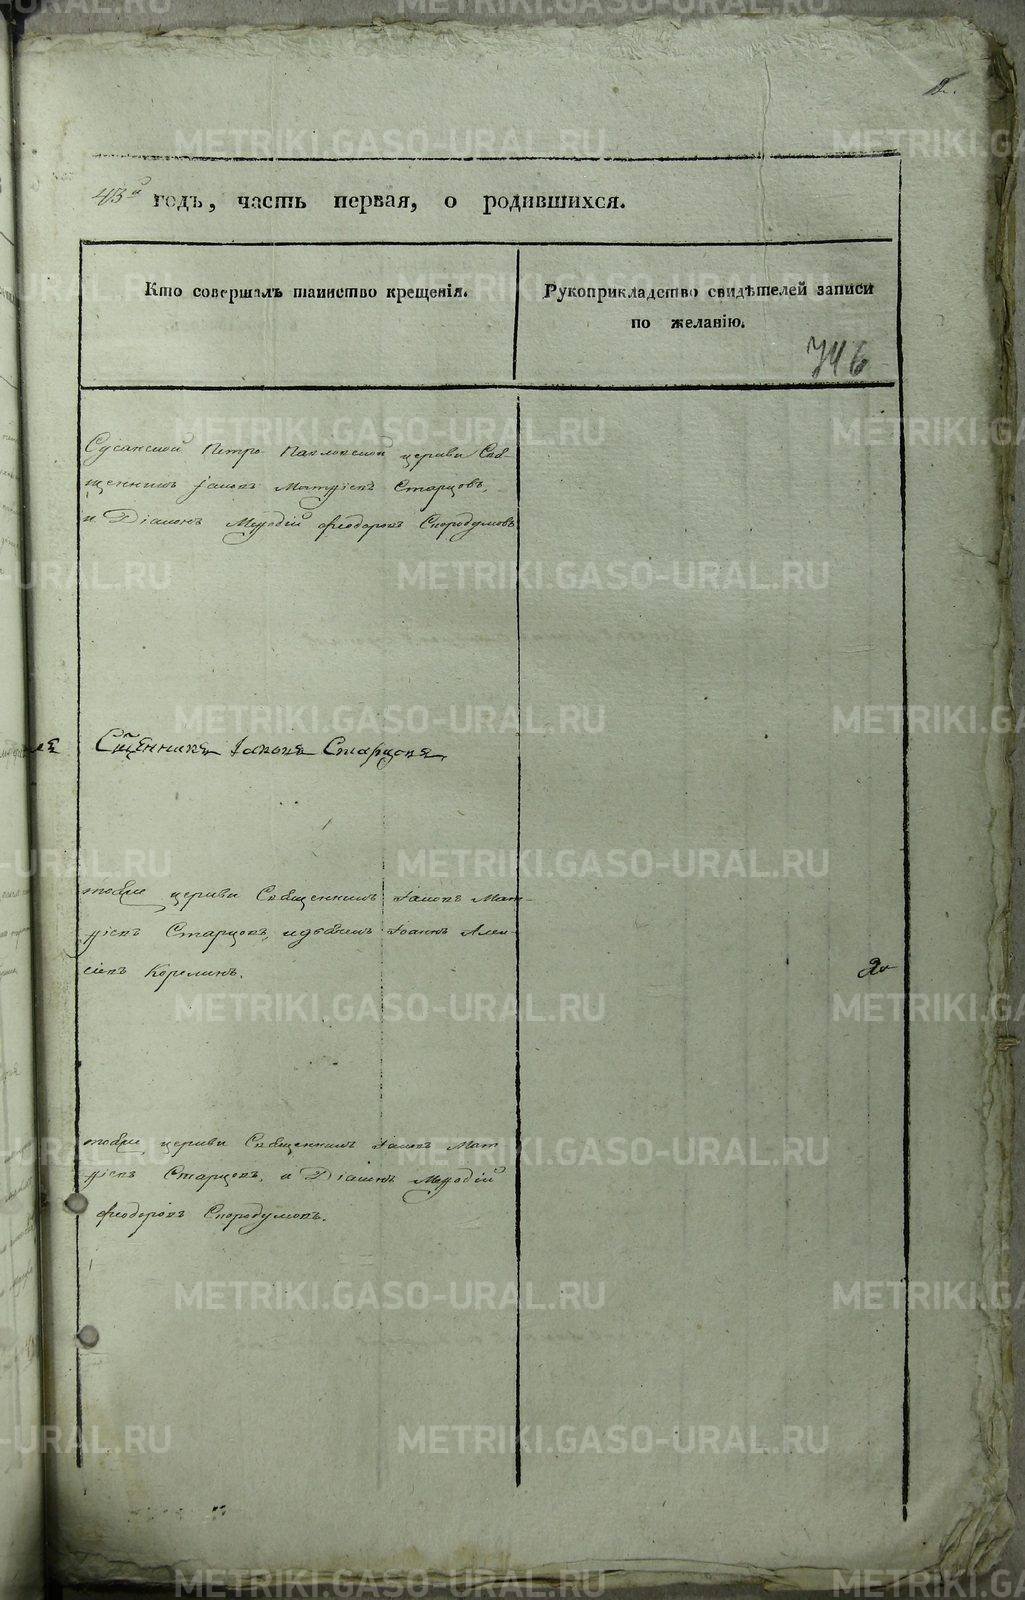 2.
43й годъ, часть первая, о родившихся.
Кто совершалъ таинство крещенія.
Рукоприкладство свидѣтелей записи
по желанію.
746
Сусанской Петро Павловской церкви Свя-
щенникъ Іаковъ Матѳіевъ Старцовъ,
и Діаконъ Меѳодій Ѳеодоровъ Скородумовъ
Сщенникъ Іаковъ Старцовъ
тояже церкви Священникъ Іаковъ Мат-
ѳіевъ Старцовъ, и дьячекъ Іоаннъ Алек-
сіевъ Корелинъ.
тояже церкви Священникъ Іаковъ Мат
ѳіевъ Старцовъ, и Діаконъ Меѳодій
Ѳеодоровъ Скородумовъ.
METRIKI.GASO-URAL.RU